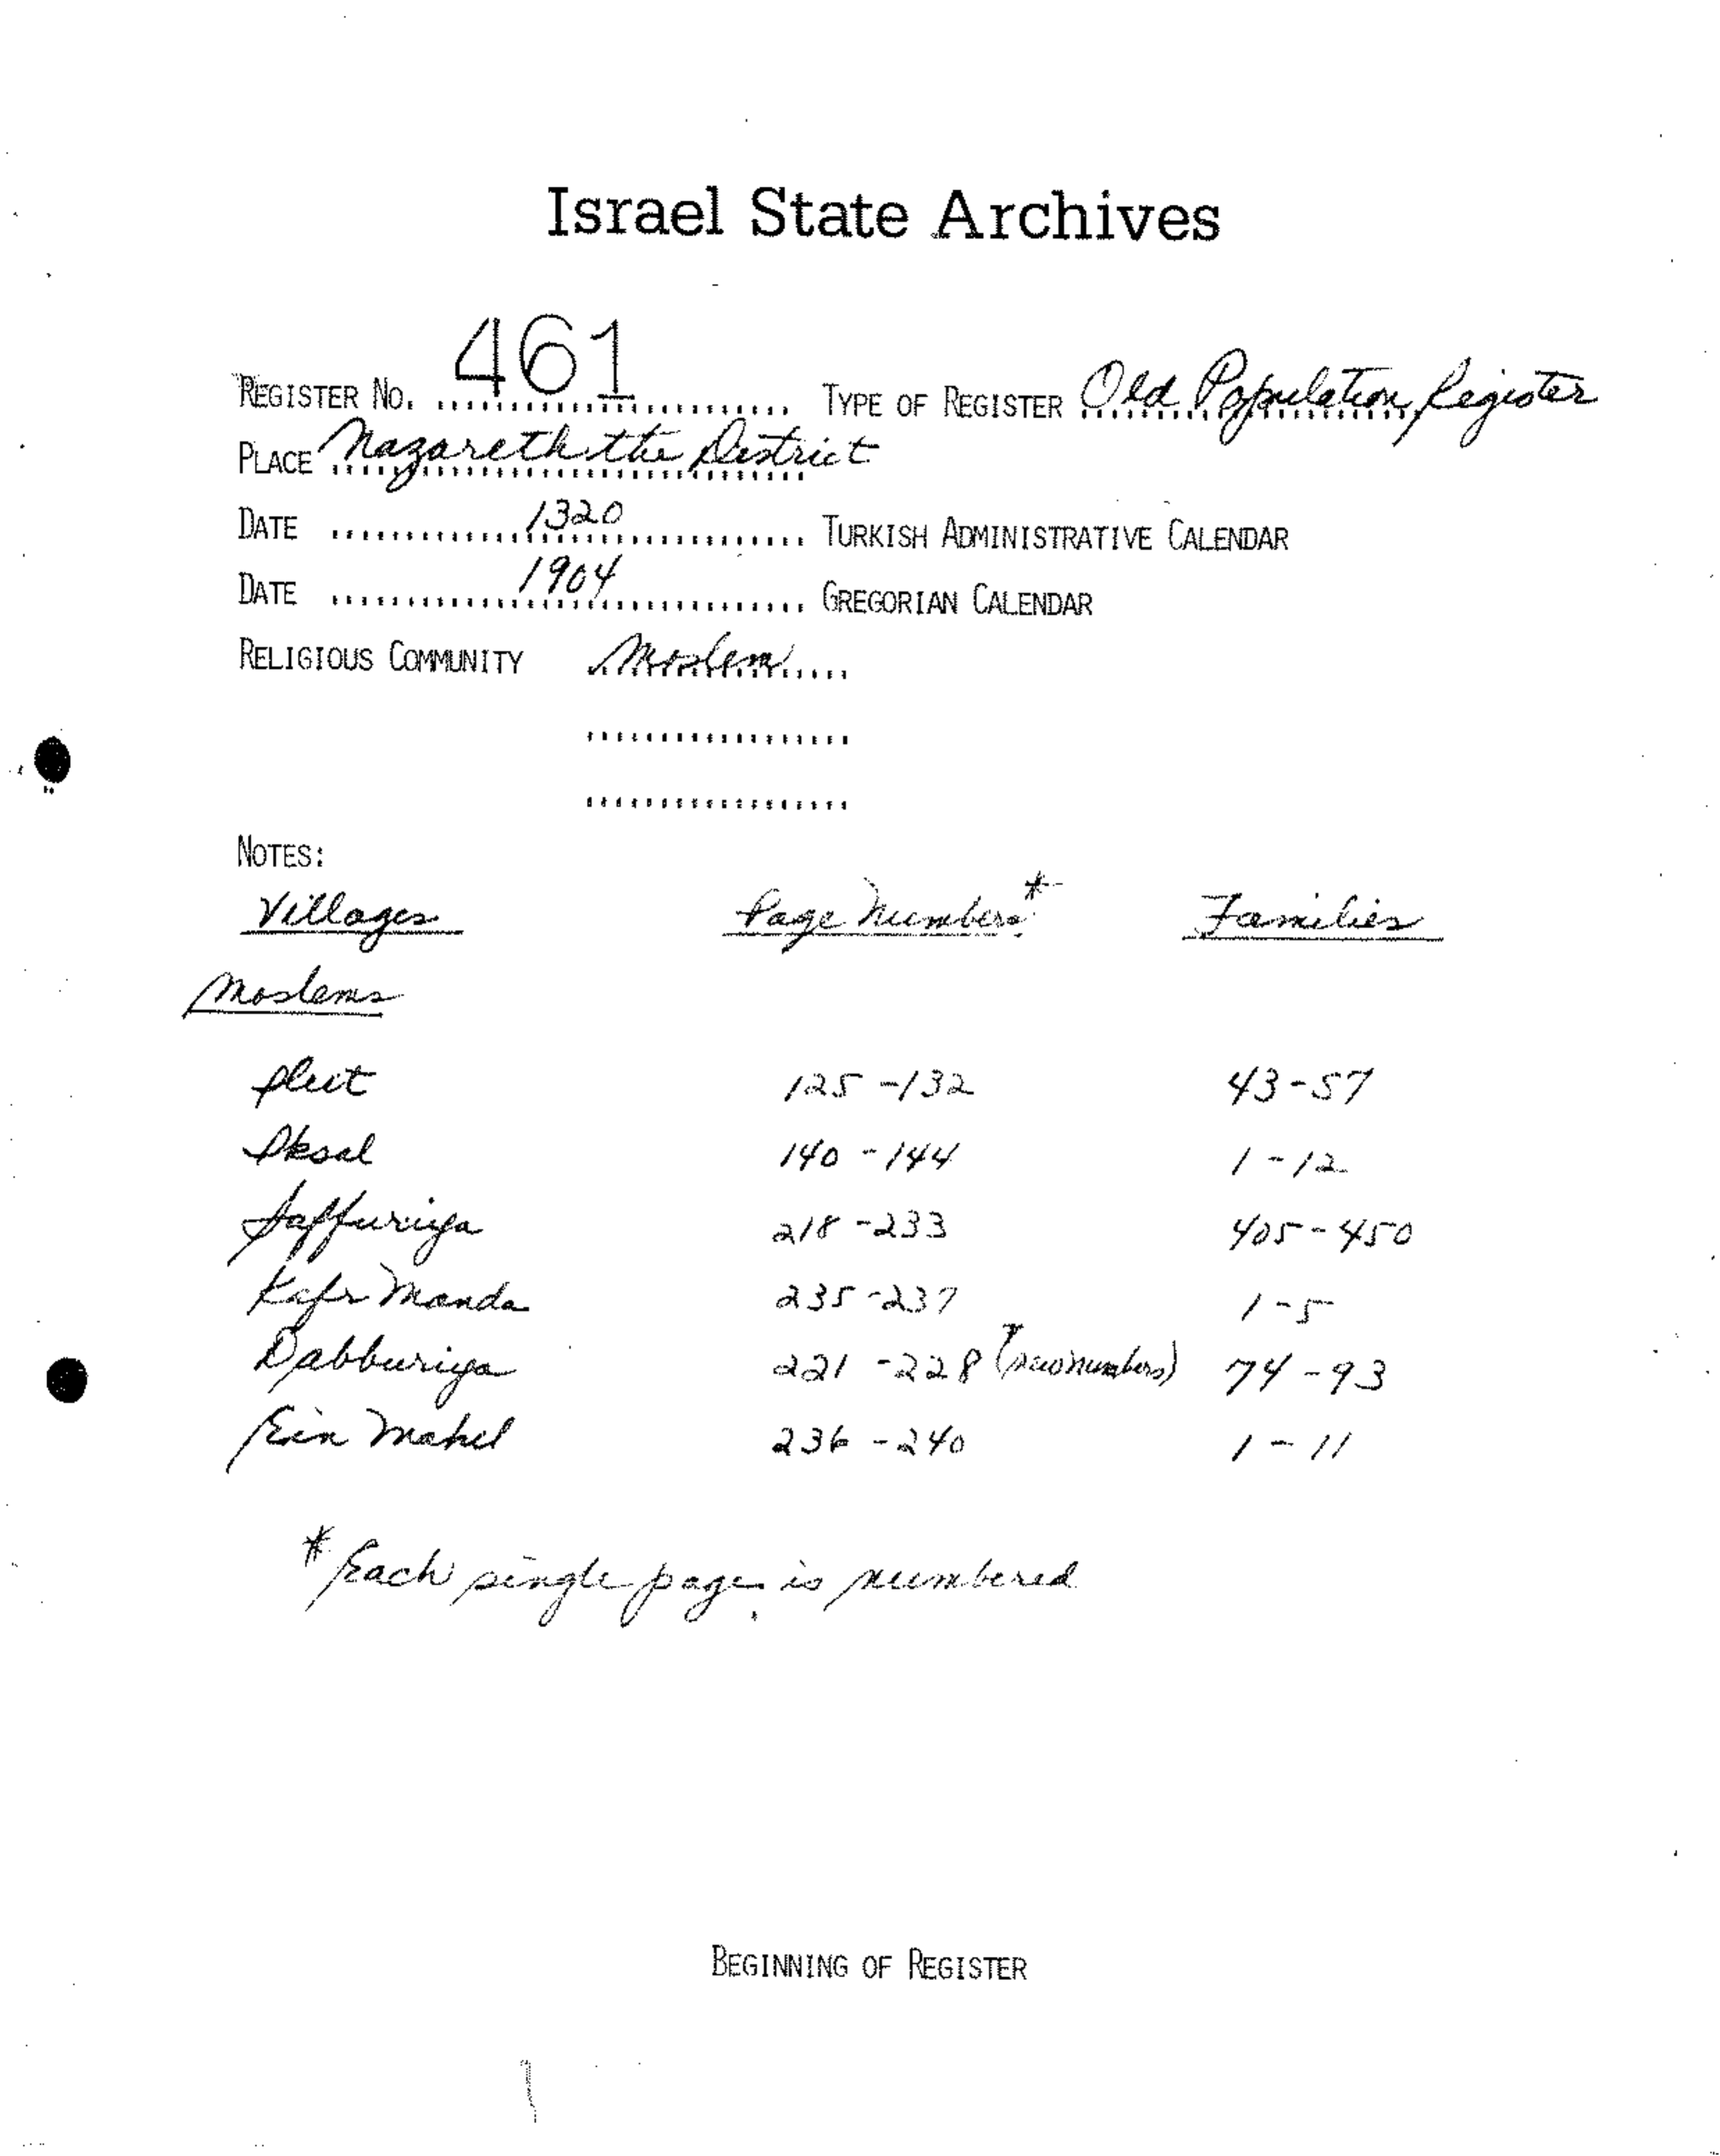 Israel State Archives
REGISTER NO. 461 TYPE OF REGISTER Old Population Register
PLACE Nazareth the District
DATE 1320 TURKISH ADMINISTRATIVE CALENDAR
DATE 1904 GREGORIAN CALENDAR
RELIGIOUS COMMUNITY Moslem
NOTES:
Villages Page Numbers* Families
Moslems
125-132 43-57
Iksal 140-144 1-12
Saffuriya 218-233 405-450
Kafr Manda 235-237 1-5
Dabburiya 221-228 (new numbers) 74-93
Ein Mahel 236-240 1-11
* Each single page is numbered
BEGINNING OF REGISTER